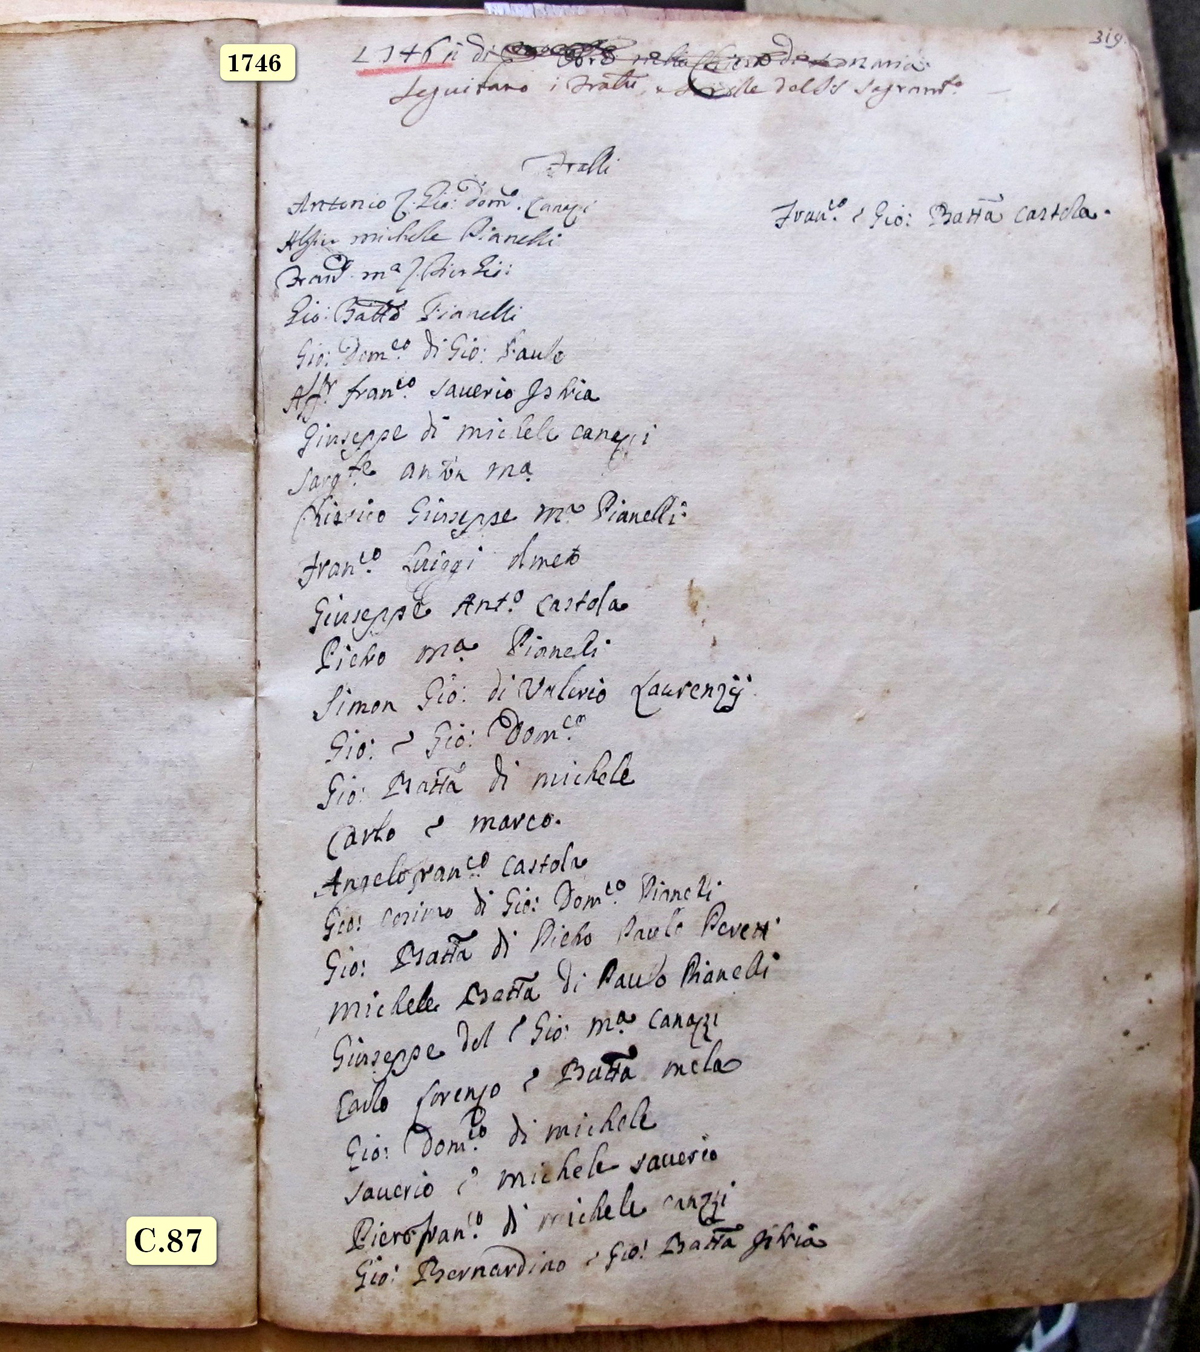 319
1746
1746 à di
Seguitano i Fratti, e delSS Sagramto
Fratti
Antonio q. Gio: Domco. Canazi
Franco. e Gio: Batta Castola.
Alfier michele Pianelli
ma
Gio: Batta Pianelli
Gio: Domco. di Gio: Paulo
Affr franco. Saverio Istria
Giuseppe di michele canazzi
Sargte anton ma.
Chierico Giuseppe Ma. Pianelli
Franco. Luiggi olmeto
Giuseppe Anto. Castola
Pietro ma. Pianelli
Simon Gio: di Valerio Laurenzij
Gio: e Gio: Domco.
Gio: Batta di michele
Carlo e marco.
Angelofranco. Castola
Gio: Cosimo di Gio: Domco. Pianelli
Gio: Batta di Pietro Paulo Peretti
Michele Batta di Paulo Pianelli
Giuseppe del q Gio: ma. Canazzi
Carlo Lorenzo e Batta mela
Gio: Domco. di michele
Saverio e michele Saverio
Pierofranco. di michele canazzi
Gio: Bernardino e Gio: Batta Istria
C.87